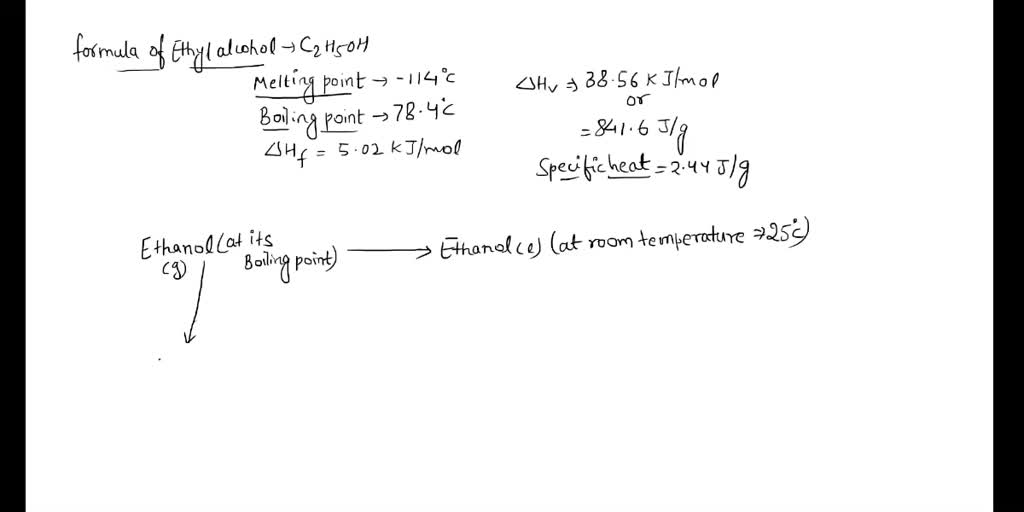 formula of Ethyl alcohol → C2H5OH
Melting point → -114°c
Boiling point → 78.4°c
ΔHf = 5.02 KJ/mol
ΔHv ⇒ 38.56 KJ/mol
or
= 841.6 J/g
Specific heat = 2.44 J/g
Ethanol (at its Boiling point) (g) → Ethanol (l) (at room temperature ⇒ 25°c)